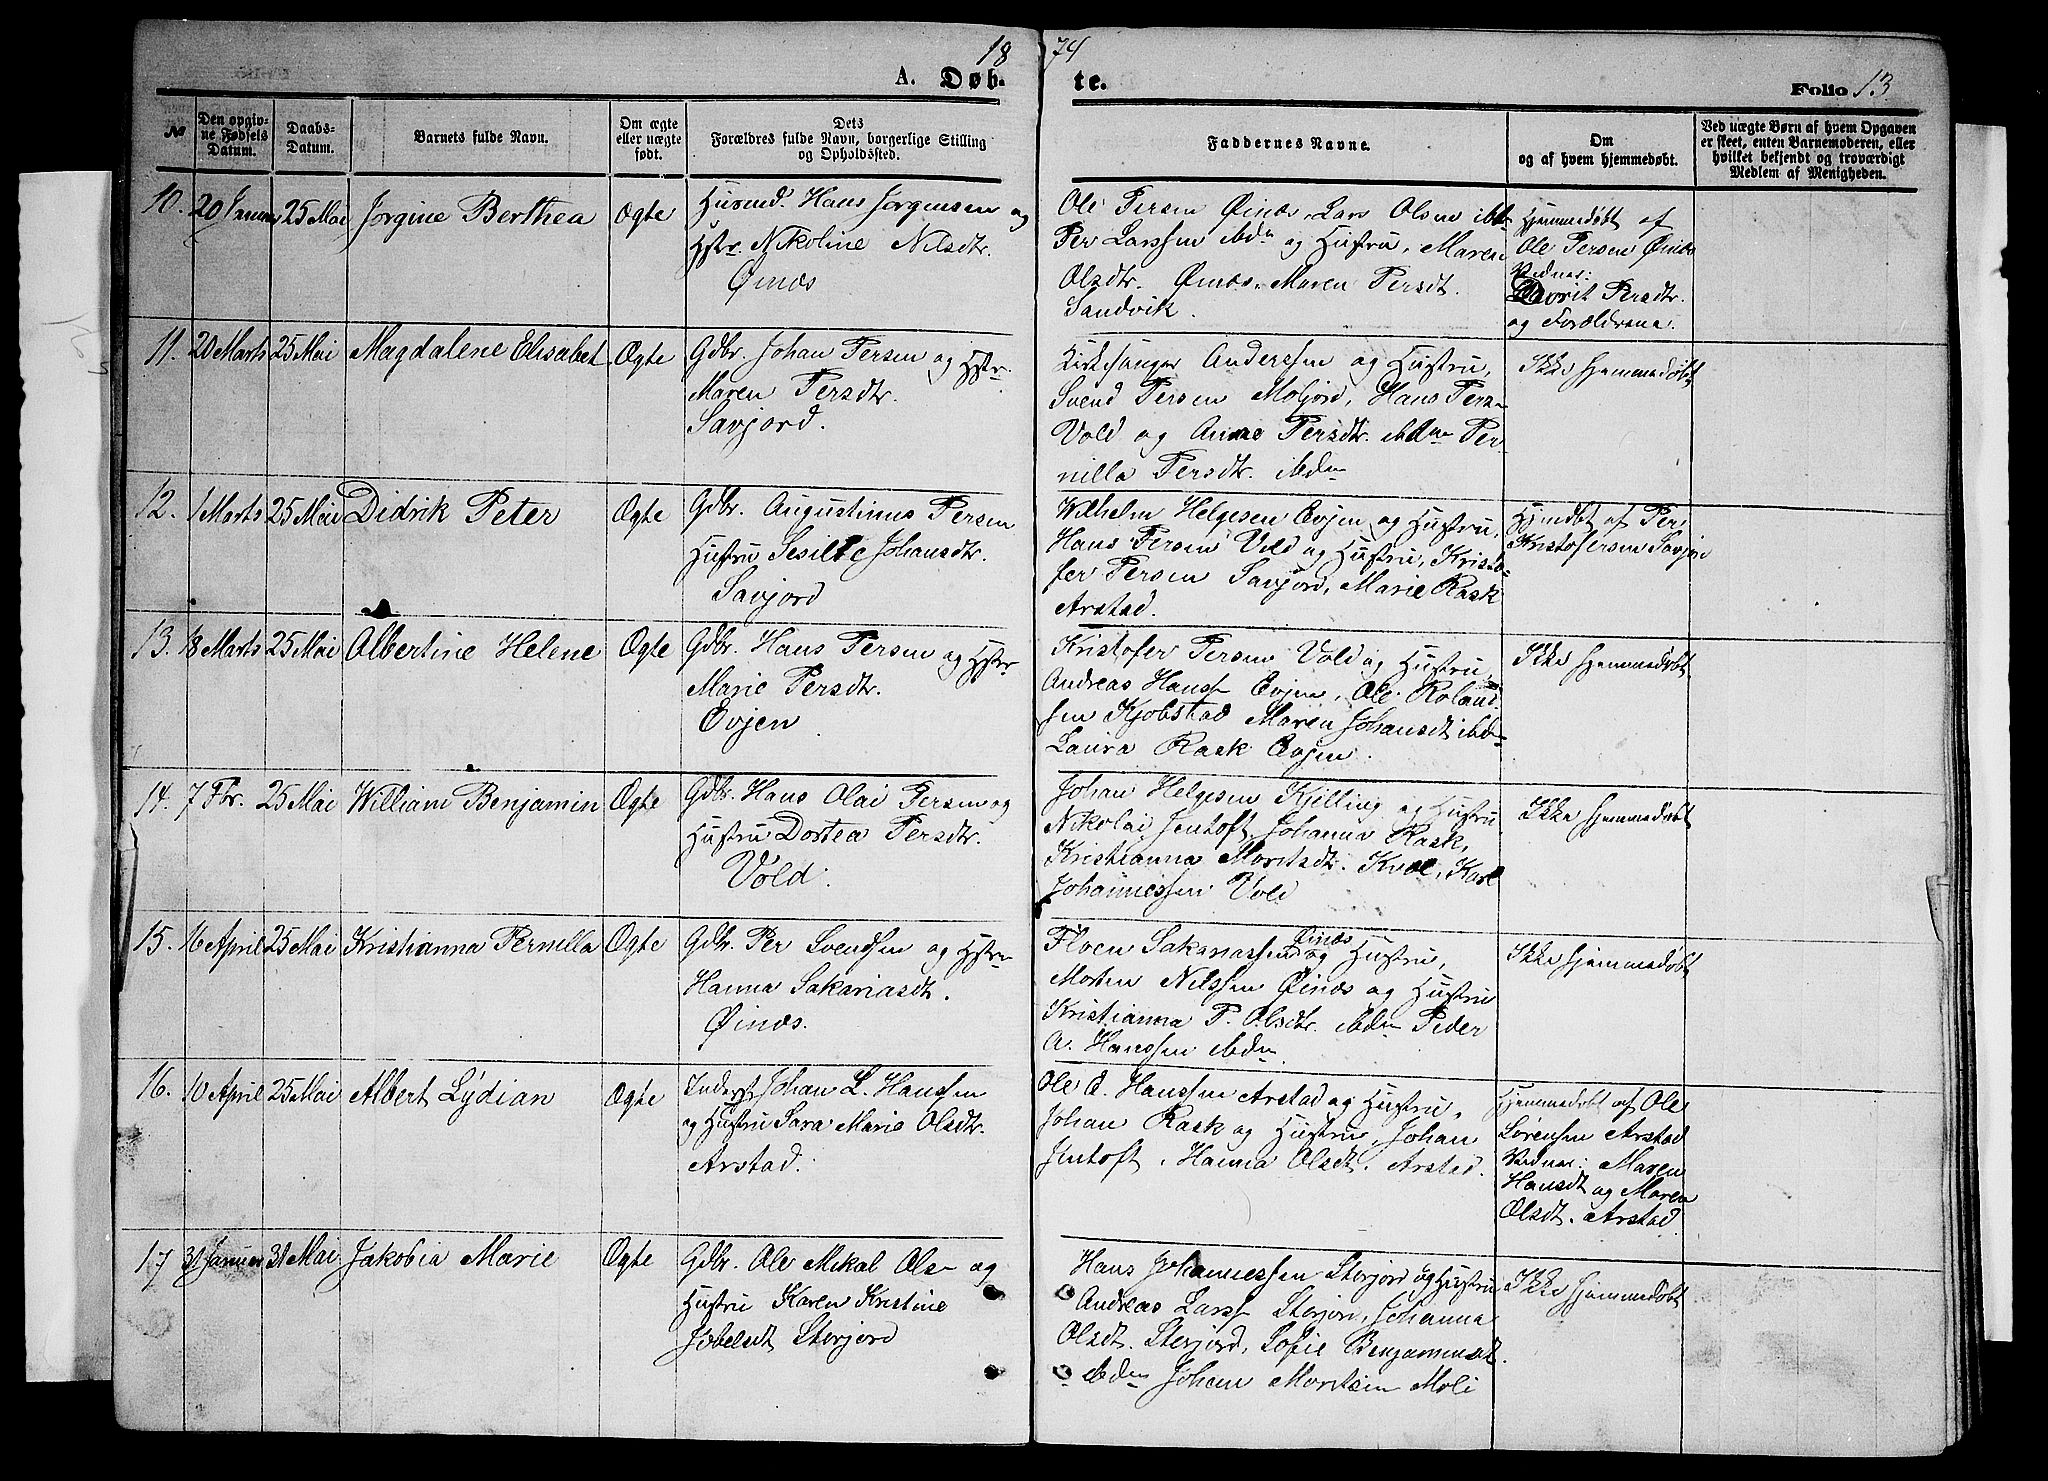 1874
A. Døbte. Folio 13
№
Den opgivne Fødsels Datum.
Daabs-Datum.
Barnets fulde Navn.
Om ægte eller uægte født.
Dets Forældres fulde Navn, borgerlige Stilling og Opholdsted.
Faddernes Navne.
Om og af hvem hjemmedøbt.
Ved uægte Børn af hvem Opgaven er skeet, enten Barnemoderen, eller hvilket bekjendt og troværdigt Medlem af Menigheden.
10. 20 Januar 25 Mai Jørgine Berthea Ægte
Husmd. Hans Jørgensen og
Hstr. Nikoline Nilsdtr.
Øinæs
Ole Persen Øinæs, Lars Olsen ibdn
Per Larssen ibdn og Hustru, Maren
Olsdtr. Øinæs, Maren Persdt.
Sandvik.
Hjemmedøbt af
Ole Persen Øinæs
Vidner:
Persdtr.
og Forældrene.
11. 20 Marts 25 Mai Magdalene Elisabet Ægte
Gdbr. Johan Persen og Hstr.
Maren Persdtr.
Savjord.
Kirkesanger Anderssen og Hustru,
Svend Persen Moljord, Hans Persn
Vold og Anne Persdtr. ibdn Per-
nilla Persdtr. ibdn
Ikke hjemmedøbt
12. 1 Marts 25 Mai Didrik Peter Ægte
Gdbr. Augustinus Persen
Hustru Sesilie Johansdtr.
Savjord
Wilhelm Helgesen Evjen og Hustru,
Hans Persen Vold og Hustru, Kristo-
fer Persen Savjord, Marie Rask
Arstad.
Hjemdøbt af Per
Kristofersen Savjor
13. 18 Marts 25 Mai Albertine Helene Ægte
Gdbr. Hans Persen og Hstr
Marie Persdtr.
Evjen
Kristofer Persen Vold og Hustru,
Andreas Hanss Evjen, Ole Roland-
sen Kjøbstad Maren Johansdt ibdn
Laura Rask Evjen.
Ikke hjemmedøbt
14. 7 Fbr. 25 Mai William Benjamin Ægte
Gdbr. Hans Olai Persen og
Hustru Dortea Persdtr.
Vold.
Johan Helgesen Kjelling og Hustru
Nikolai Jentoft, Johanna Rask,
Kristianna Moritsdtr. Kvæl, Karl
Johannessen Vold
Ikke hjemmedøbt
15. 16 April 25 Mai Kristianna Pernilla Ægte
Gdbr. Per Svendsen og Hstr
Hanna Sakariasdt.
Øinæs.
Sakariassen Øinæs og Hustru,
Morten Nilssen Øinæs og Hustru
Kristianna P. Olsdtr. ibdn Peder
A. Hanssen ibdn
Ikke hjemmedøbt
16. 10 April 25 Mai Albert Lydian Ægte
Inderst Johan L. Hanssen
og Hustru Sara Marie Olsdtr.
Arstad.
Ole C. Hanssen Arstad og Hustru,
Johan Rask og Hustru, Johan
Jentoft, Hanna Olsdt. Arstad.
Hjemmedøbt af Ole
Sørensen Arstad
Vidner: Maren
Hansdt og Maren
Olsdt. Arstad
17 31 Januar 31 Mai Jakobia Marie Ægte
Gdbr. Ole Mikal Ols og
Hustru Karen Kristine
Storjord
Hans Johannessen Storjord og Hustru
Andreas Larss Storjord, Johanna
Olsdt. Storjord, Sofie Benjaminsdt.
ibdn Johan Moritsen Moli
Ikke hjemmedøbt